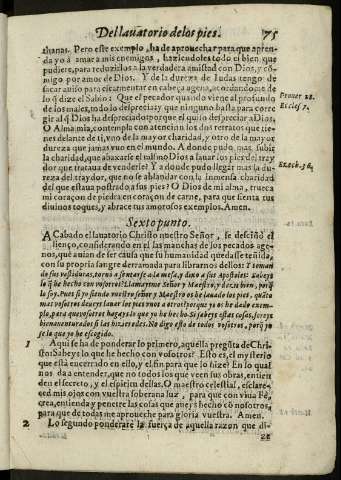 Del lauatorio de los pies. 75
thanas. Pero este exemplo, ha de aprouechar para que apren-
da yo à amar a mis enemigos, haziendoles todo el bien que
pudiere, para reduzirlos a la verdadera amistad con Dios, y cõ-
migo por amor de Dios. Y de la dureza de Iudas tengo de
sacar auiso para escarmentar en cabeça agena, acordandome de
lo q̃ dize el Sabio: Que el pecador quando viene al profundo
de los males, todo lo desprecia: y que ninguno basta para corre
gir al q̃ Dios ha despreciado: porque el quiso despreciar a Dios.
O Alma mia, contempla con atencion los dos retratos que tie-
nes delante de ti, vno de la mayor charidad, y otro de la mayor
dureza que jamas vuo en el mundo. A donde pudo mas subir
la charidad, que abaxarse el mismo Dios a lauar los pies del tray
dor que trataua de venderle? Y a donde pudo llegar mas la du-
reza del traydor, que no se ablandar con la inmensa charidad
del que estaua postrado a sus pies? O Dios de mi alma, trueca
mi coraçon de piedra en coraçon de carne, para que sienta tus
diuinos toques, y abrace tus amorosos exemplos. Amen.
Prouer 18.
Eccles 7.
Ezech. 36.
Sexto punto.
ACabado el lauatorio Christo nuestro Señor, se desciñó el
lienço, considerando en el las manchas de los pecados age-
nos, que auian de ser causa que su humanidad quedasse teñida,
con su propria sangre derramada para librarnos dellos: Y toman
do sus vestiduras, torno a sentarse a la mesa, y dixo a sus Apostoles: Sabeys
lo q̃ he hecho con vosotros? Llamaysme Señor y Maestro, y dezis bien, porq̃
lo soy. Pues si yo siendo vuestro señor y Maestro os he lauado los pies, quãto
mas vosotros deueys lauar los pies vnos a otros? porque yo os he dado exem-
plo, para que vosotros hagays lo que yo he hecho. Si sabeys estas cosas, sereys
bienauenturados si las hizieredes. No digo esto de todos vosotros, porq̃ yo
se lo que yo he escogido.
1 Aqui se ha de ponderar lo primero, aquella pregũta de Chri-
sto: Sabeys lo que he hecho con vosotros? Esto es, el mysterio
que està encerrado en ello, y el fin para que lo hize? En lo qual
nos da a entender, que no todos los que veen sus obras, entien
den el secreto, y el espiritu dellas. O maestro celestial, esclare-
ced mis ojos con vuestra soberana luz, para que con viua Fè,
crea, entienda y penetre las cosas que aueys hecho cõ nosotros,
para que de todas me aproueche para gloria vuestra. Amen.
2 Lo segundo ponderarè la fuerça de aquella razon que di-
ze